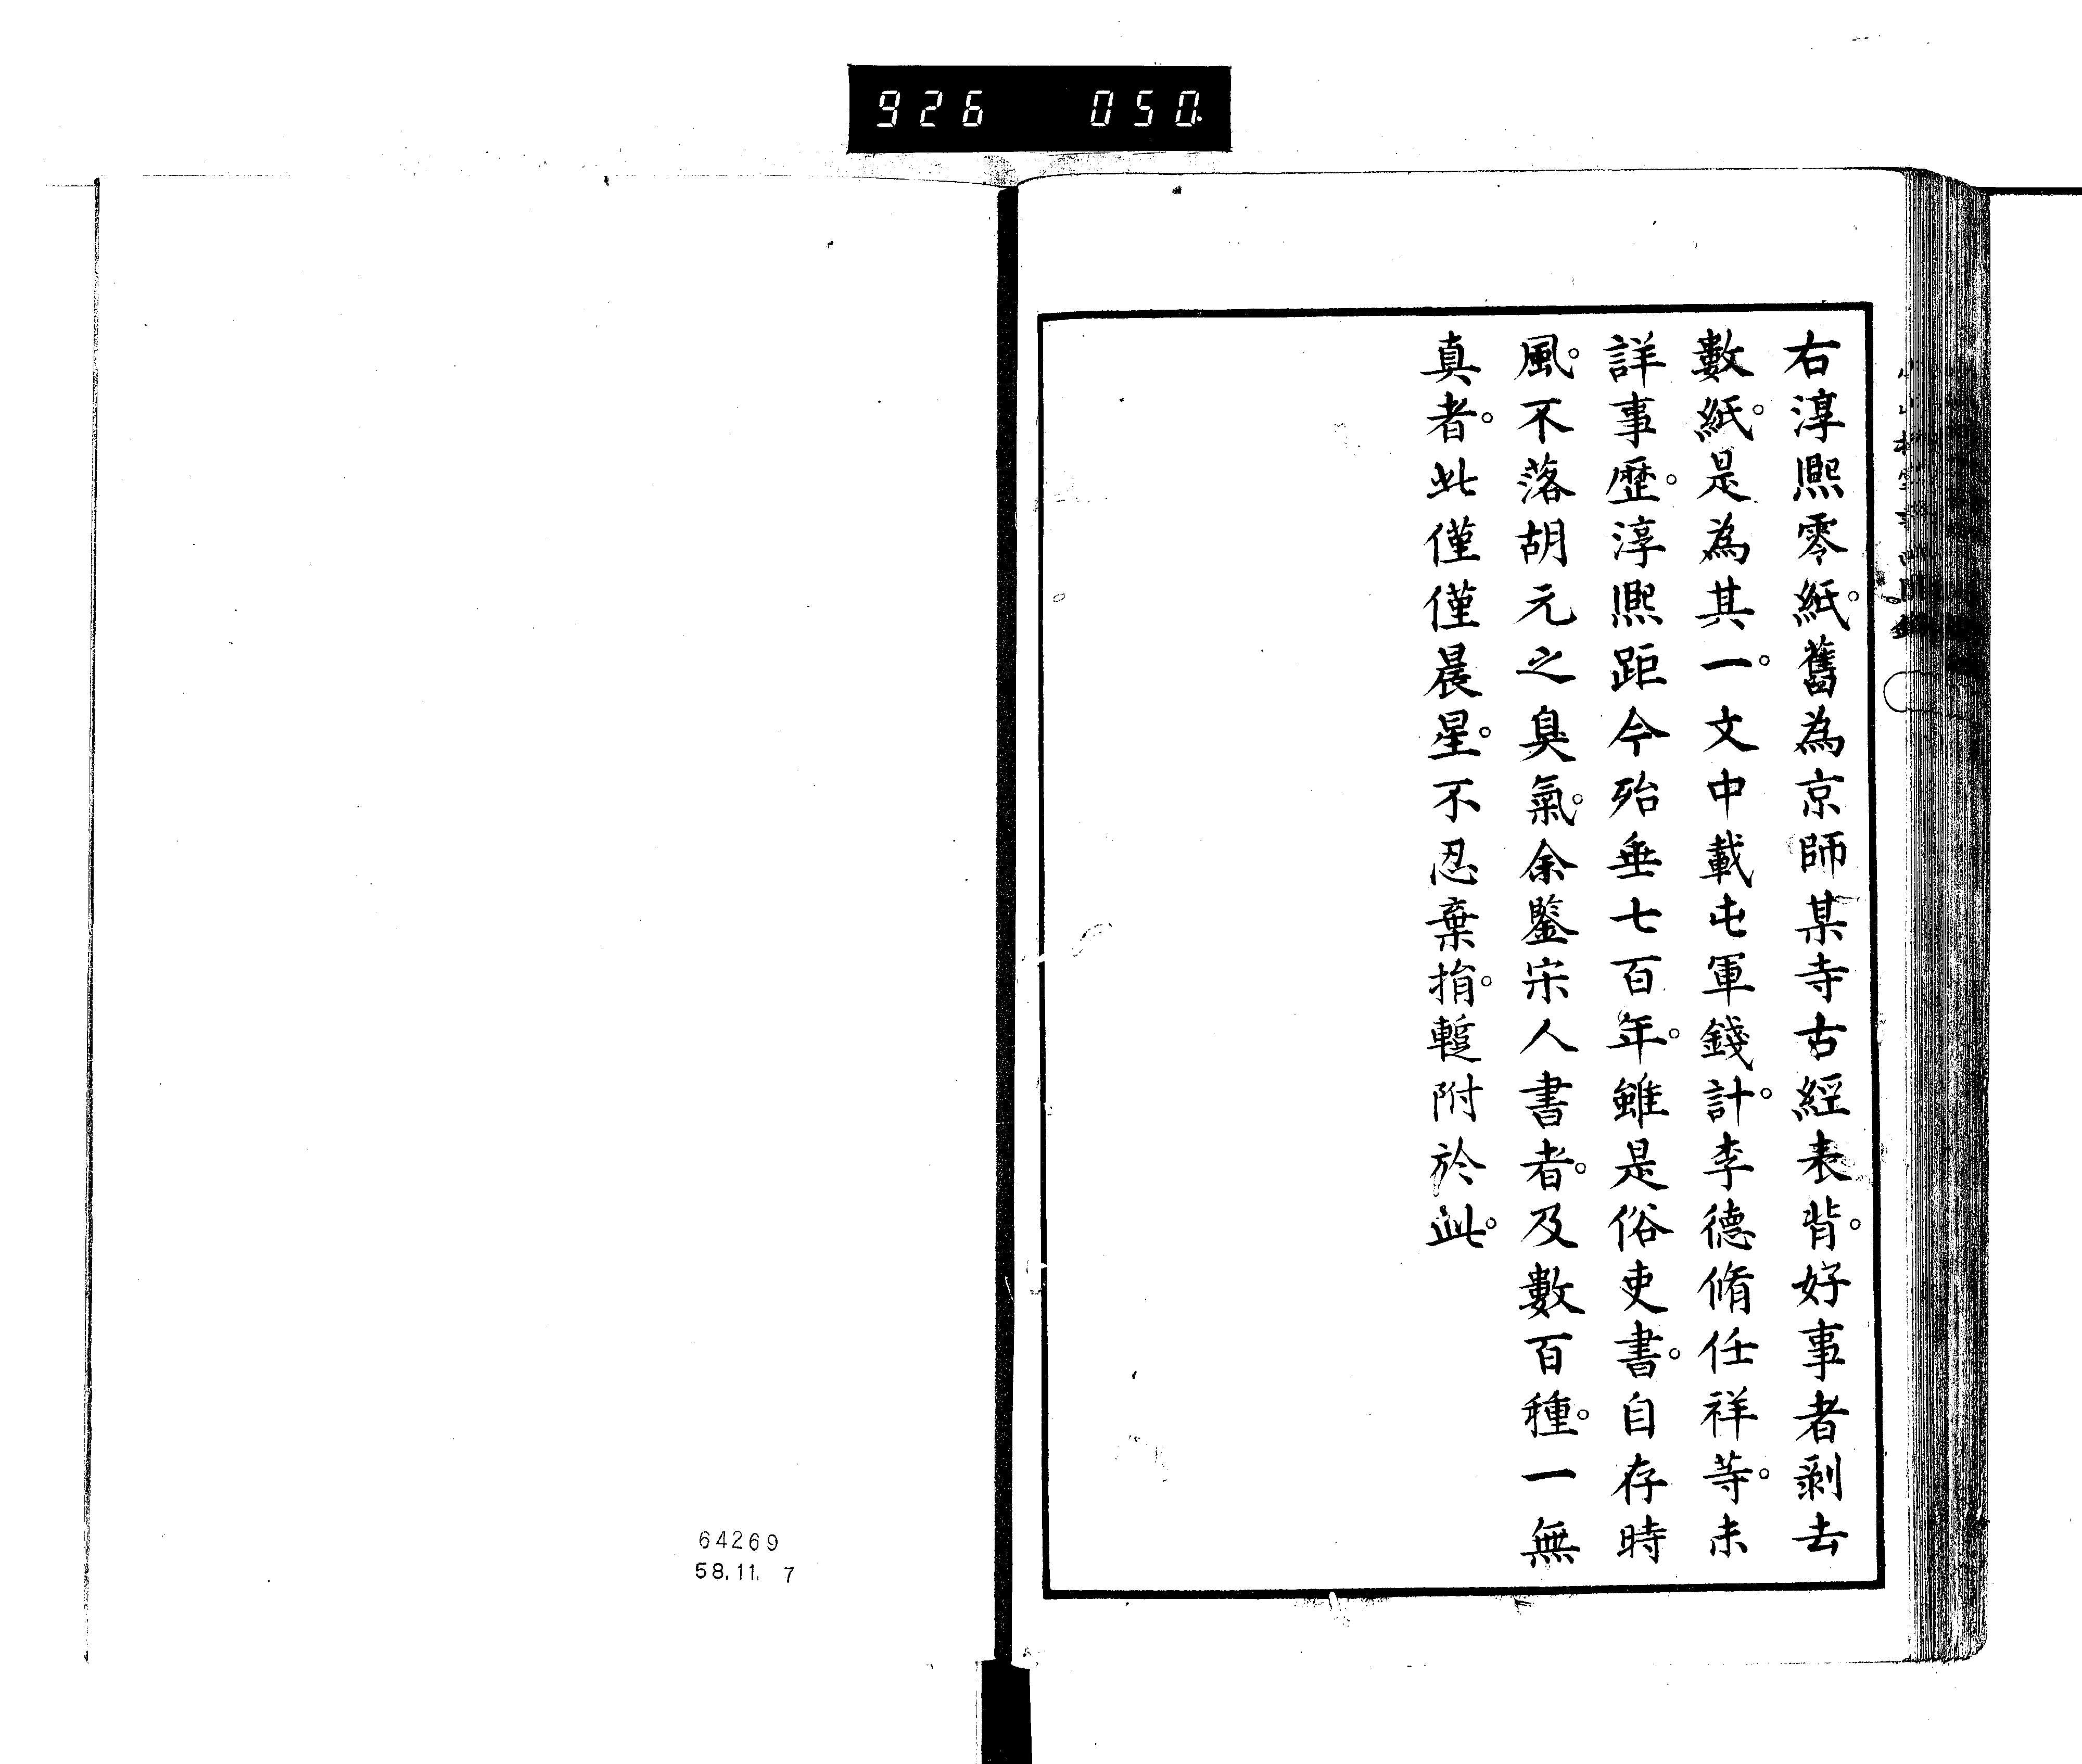 926 050.
右淳熙零紙。舊為京師某寺古經表背。好事者剝去
數紙。是為其一。文中載屯軍錢計。李德脩任祥等。未
詳事歷。淳熙距今殆垂七百年。雖是俗吏書。自存時
風。不落胡元之臭氣。余鑒宋人書者。及數百種。一無
真者。此僅僅晨星。不忍棄捐。蹔附於此。
64269
58.11. 7